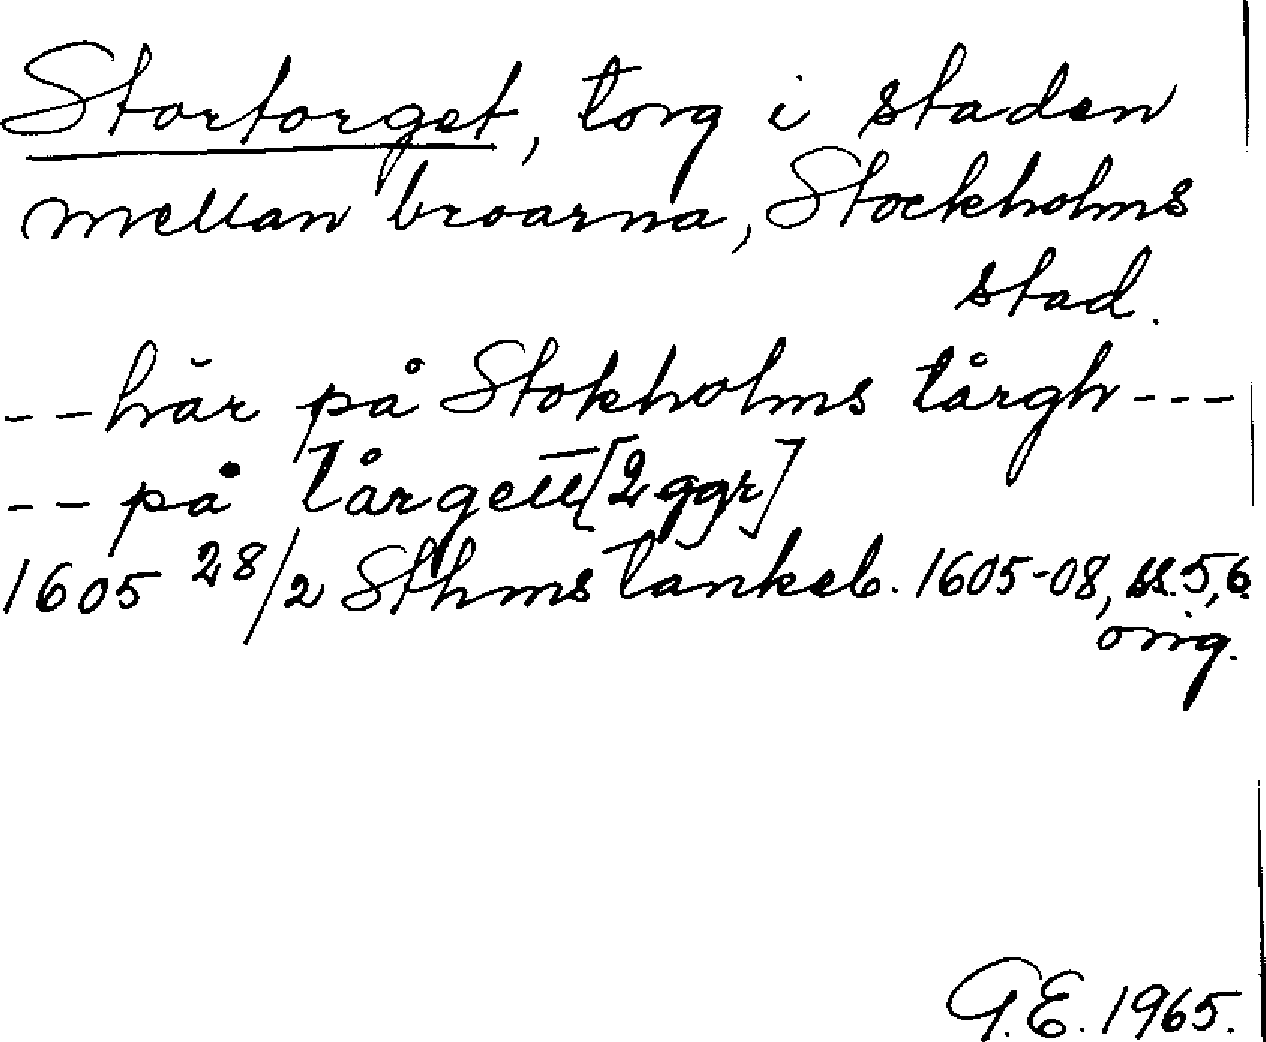 Stortorget, torg i staden
mellan broarna, Stockholms
stad.
--här på Stokholms tårgh---
--på tårgett [2 ggr]
1605 28/2 Sthms tankeb. 1605-08, ss. 5, 6.
orig.
G.E. 1965.